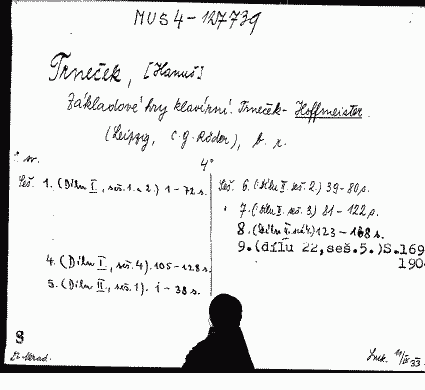 MUS 4 - 127739
Trneček, [Hanuš]
Základové hry klavírní. Trneček - Hoffmeister.
(Leipzig, C. G. Röder), b. r.
4°
Seš. 1. (Dílu I, seš. 1. a 2.) 1 - 72 s.
4. (Dílu I, seš. 4). 105 - 128 s.
5. (Dílu II, seš. 1). i - 38 s.
Seš. 6. (Dílu II. seš. 2.) 39 - 80 p.
7. (Dílu II. seš. 3) 81 - 122 p.
8. (Dílu II. seš. 4.) 123 - 168 s.
9. (dílu 22, seš. 5.) S. 169
190
S